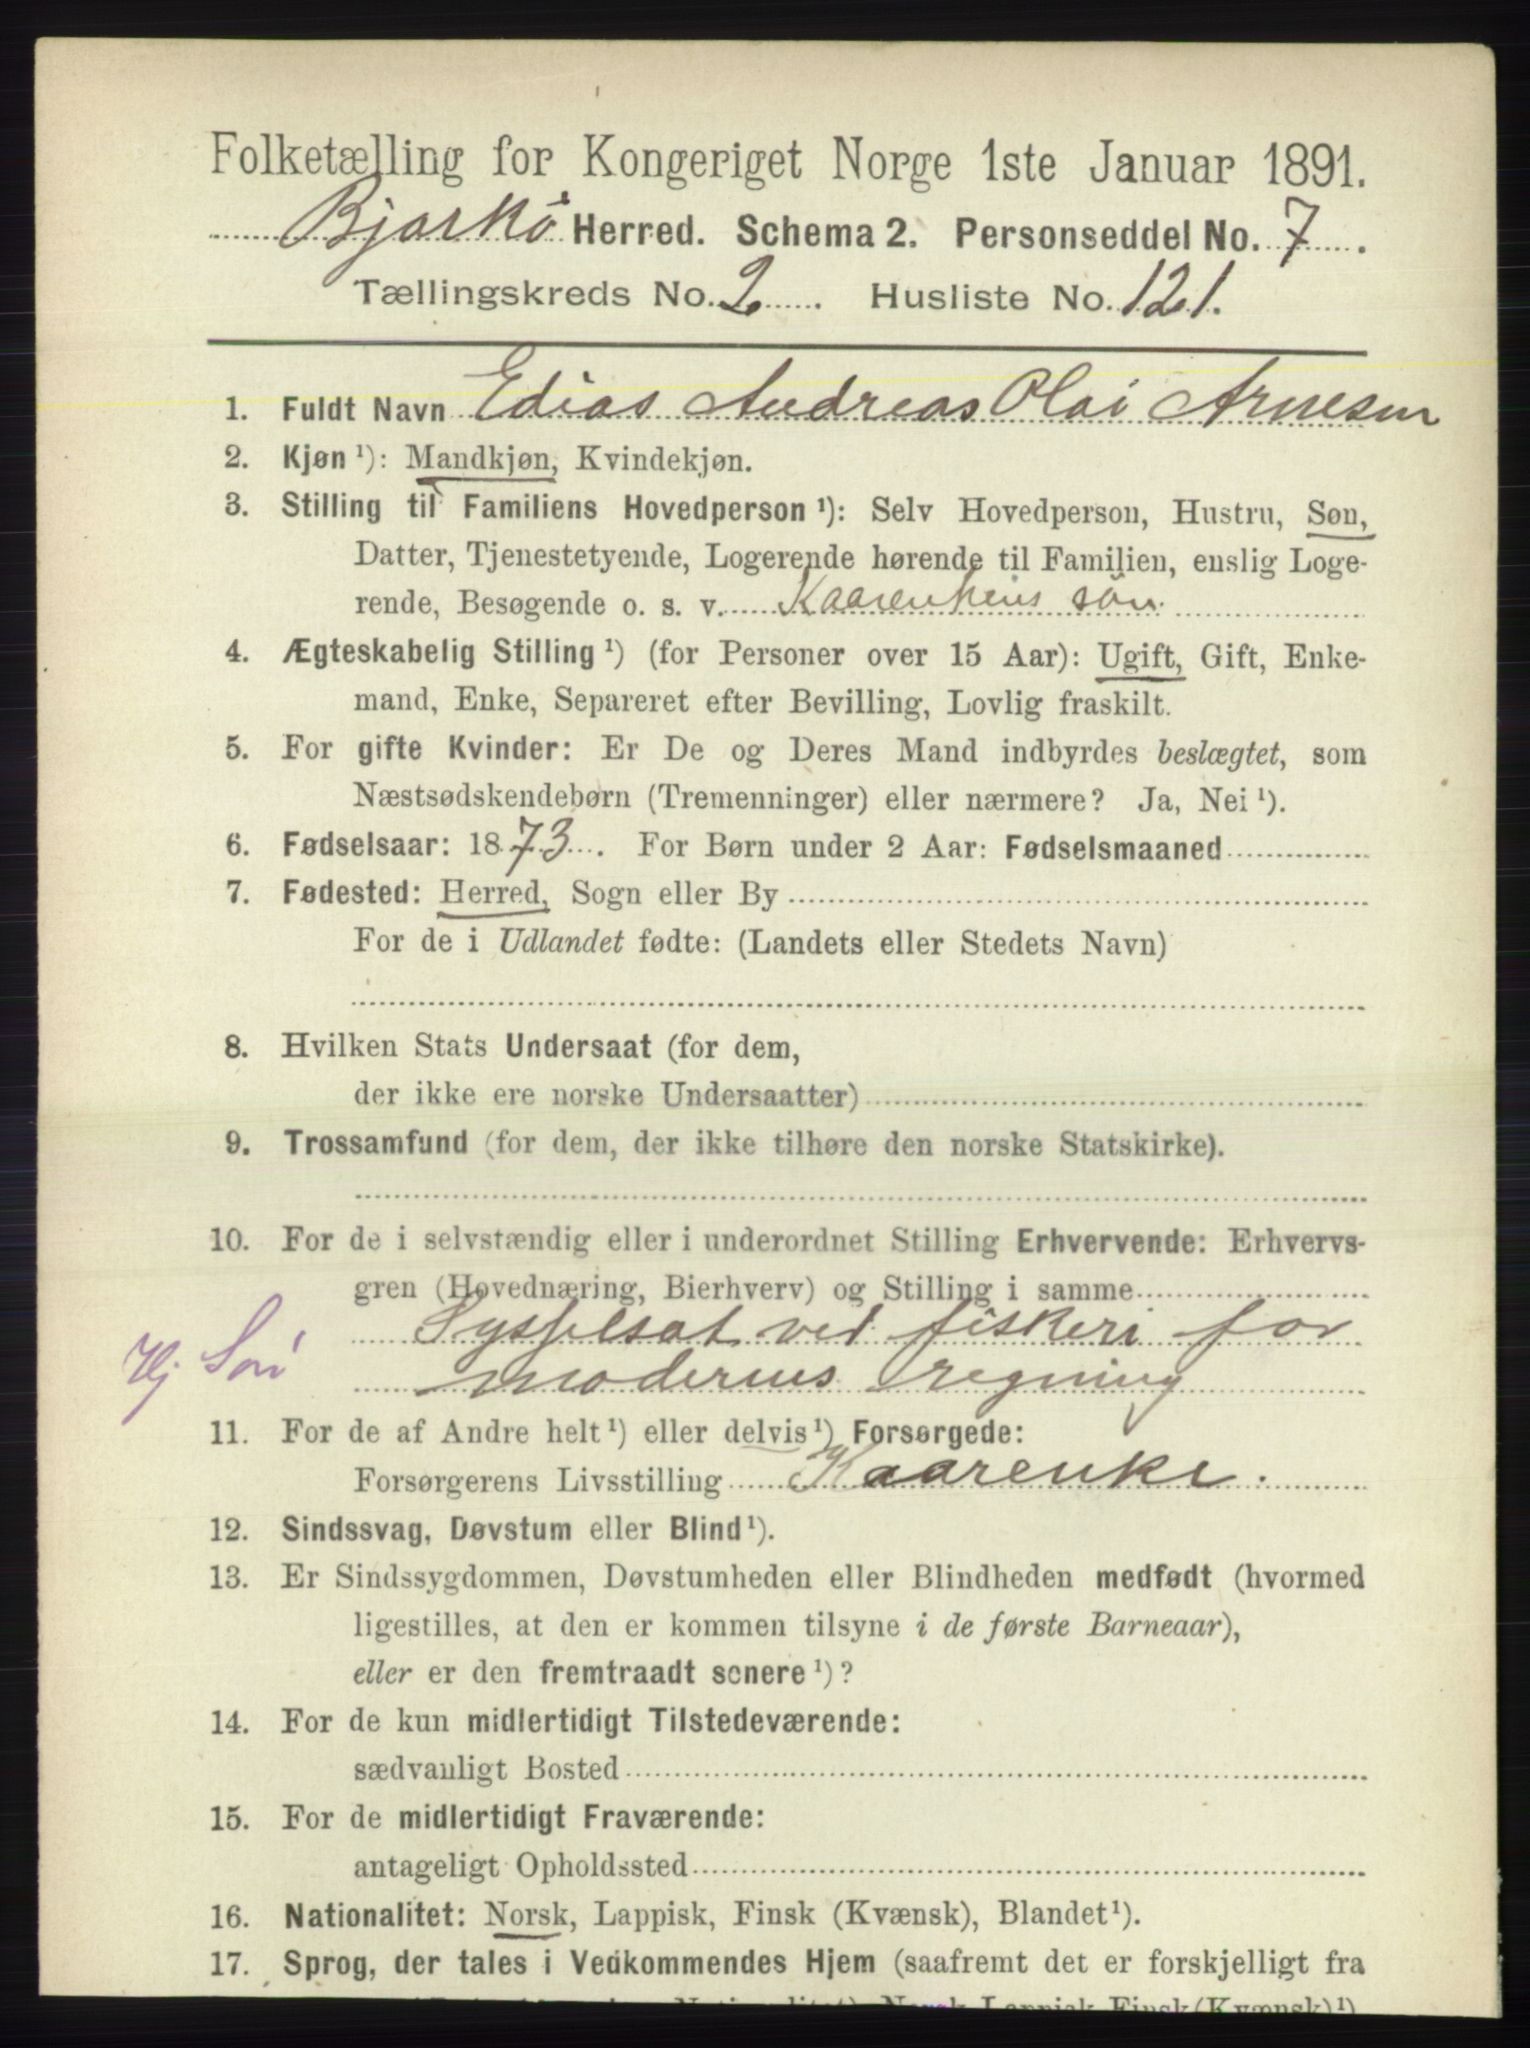 Folketælling for Kongeriget Norge 1ste Januar 1891.
Bjarkö Herred. Schema 2. Personseddel No. 7.
Tællingskreds No. 2. Husliste No. 121.
1. Fuldt Navn Edias Andreas Olai Arnesen
2. Kjøn ¹): Mandkjøn, Kvindekjøn.
3. Stilling til Familiens Hovedperson ¹): Selv Hovedperson, Hustru, Søn,
Datter, Tjenestetyende, Logerende hørende til Familien, enslig Loge-
rende, Besøgende o. s. v. Kaarenkens sön.
4. Ægteskabelig Stilling ¹) (for Personer over 15 Aar): Ugift, Gift, Enke-
mand, Enke, Separeret efter Bevilling, Lovlig fraskilt.
5. For gifte Kvinder: Er De og Deres Mand indbyrdes beslægtet, som
Næstsødskendebørn (Tremenninger) eller nærmere? Ja, Nei ¹).
6. Fødselsaar: 1873. For Børn under 2 Aar: Fødselsmaaned
7. Fødested: Herred, Sogn eller By
For de i Udlandet fødte: (Landets eller Stedets Navn)
8. Hvilken Stats Undersaat (for dem,
der ikke ere norske Undersaatter)
9. Trossamfund (for dem, der ikke tilhøre den norske Statskirke).
10. For de i selvstændig eller i underordnet Stilling Erhvervende: Erhvervs-
gren (Hovednæring, Bierhverv) og Stilling i samme
Sysselsat ved fiskeri for
Hj Sön
moderens regning
11. For de af Andre helt ¹) eller delvis ¹) Forsørgede:
Forsørgerens Livsstilling Kaarenke.
12. Sindssvag, Døvstum eller Blind ¹).
13. Er Sindssygdommen, Døvstumheden eller Blindheden medfødt (hvormed
ligestilles, at den er kommen tilsyne i de første Barneaar),
eller er den fremtraadt senere ¹)?
14. For de kun midlertidigt Tilstedeværende:
sædvanligt Bosted
15. For de midlertidigt Fraværende:
antageligt Opholdssted
16. Nationalitet: Norsk, Lappisk, Finsk (Kvænsk), Blandet ¹).
17. Sprog, der tales i Vedkommendes Hjem (saafremt det er forskjelligt fra
Norsk, Lappisk, Finsk (Kvænsk) ¹).